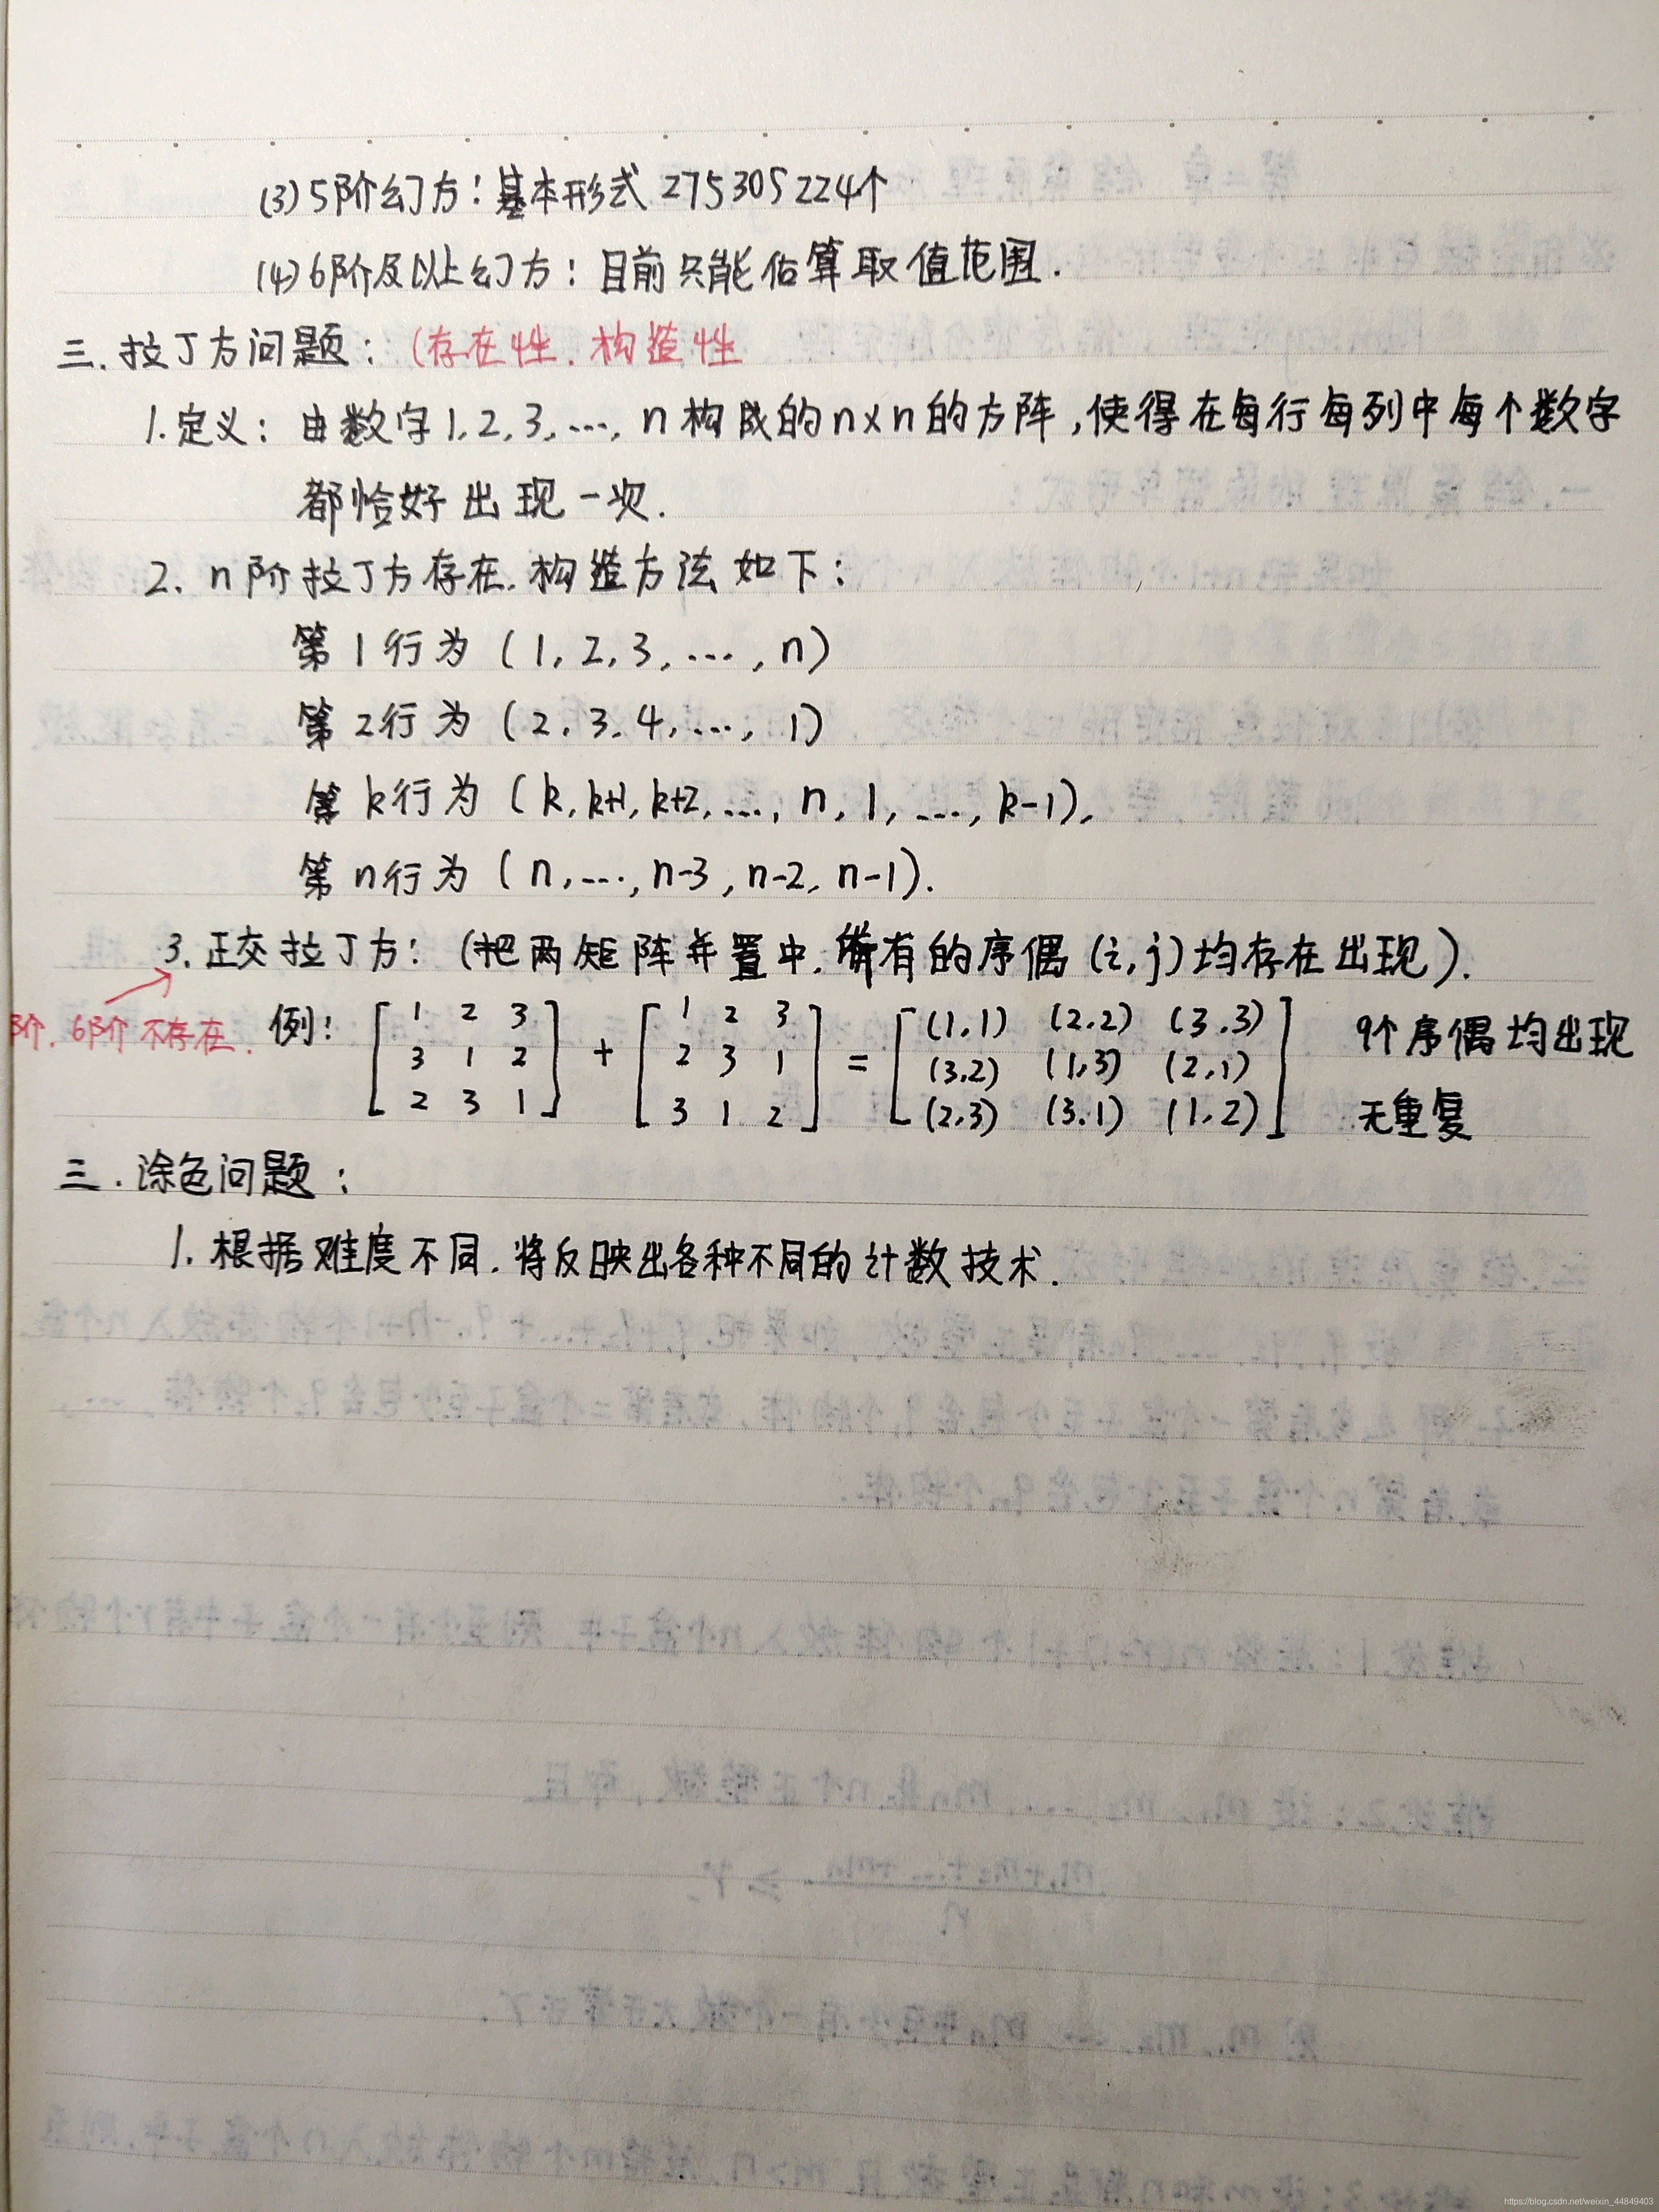 (3) 5阶幻方：基本形式 275305224个
(4) 6阶及以上幻方：目前只能估算取值范围.
三. 拉丁方问题：(存在性. 构造性
1. 定义：由数字1, 2, 3, …, n 构成的n×n的方阵,使得在每行每列中每个数字
都恰好出现一次.
2. n阶拉丁方存在. 构造方法如下：
第1行为 (1, 2, 3, …, n)
第2行为 (2, 3. 4, …, 1)
第k行为 (k, k+1, k+2, …, n, 1, …, k-1),
第n行为 (n, …, n-3, n-2, n-1).
3. 正交拉丁方：(把两矩阵并置中. 所有的序偶(i, j)均存在出现).
阶. 6阶不存在.
例: [1 2 3 + [1 2 3 = [(1,1) (2,2) (3.3) 9个序偶均出现
3 1 2 2 3 1 (3,2) (1,3) (2,1)
2 3 1] 3 1 2] (2,3) (3.1) (1,2)] 无重复
三. 涂色问题：
1. 根据难度不同. 将反映出各种不同的计数技术.
https://blog.csdn.net/weixin_44849403